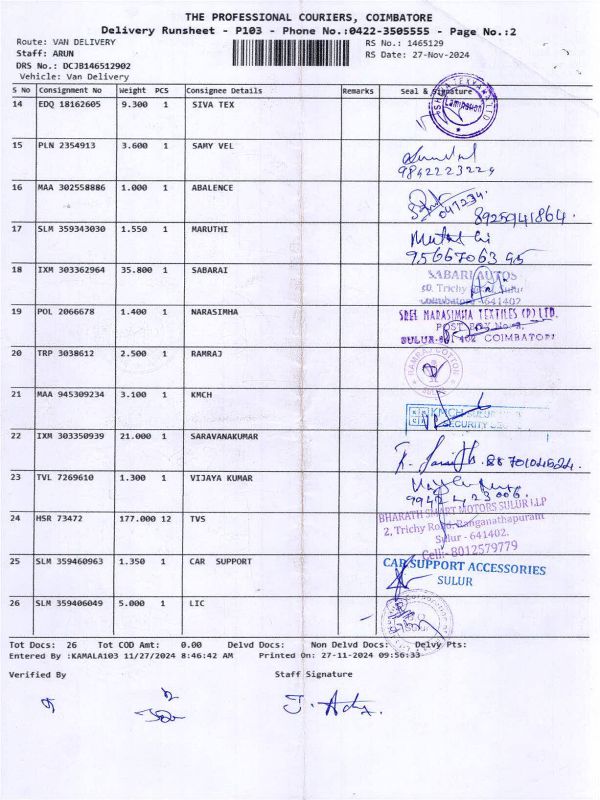 THE PROFESSIONAL COURIERS, COIMBATORE
Delivery Runsheet - P103 - Phone No.:0422-3505555 - Page No.:2
Route: VAN DELIVERY RS No.: 1465129
Staff: ARUN RS Date: 27-Nov-2024
DRS No.: DCJB146512902
Vehicle: Van Delivery
S No Consignment No Weight PCS Consignee Details Remarks Seal & Signature
14 EDQ 18162605 9.300 1 SIVA TEX
15 PLN 2354913 3.600 1 SAMY VEL
9842223224
16 MAA 302558886 1.000 1 ABALENCE
041234.
8925941864.
17 SLM 359343030 1.550 1 MARUTHI
9566706395
18 IXM 303362964 35.800 1 SABARAI
SABARI AUTOS
Trichy
641402
19 POL 2066678 1.400 1 NARASIMHA
SREE NARASIMHA TEXTILES (P) LTD.
POST BOX No.
SULUR- 402 COIMBATORE
20 TRP 3038612 2.500 1 RAMRAJ
RAMRAJ COTTON
21 MAA 945309234 3.100 1 KMCH
KMCH SULUR
SECURITY
22 IXM 303350939 21.000 1 SARAVANAKUMAR
23 TVL 7269610 1.300 1 VIJAYA KUMAR
9942423006.
24 HSR 73472 177.000 12 TVS
BHARATH SMART MOTORS SULUR LLP
2, Trichy Road, Ranganathapuram
Sulur - 641402.
Cell:- 8012579779
25 SLM 359460963 1.350 1 CAR SUPPORT
CAR SUPPORT ACCESSORIES
SULUR
26 SLM 359406049 5.000 1 LIC
Tot Docs: 26 Tot COD Amt: 0.00 Delvd Docs: Non Delvd Docs: Delvy Pts:
Entered By :KAMALA103 11/27/2024 8:46:42 AM Printed On: 27-11-2024 09:56:33
Verified By Staff Signature